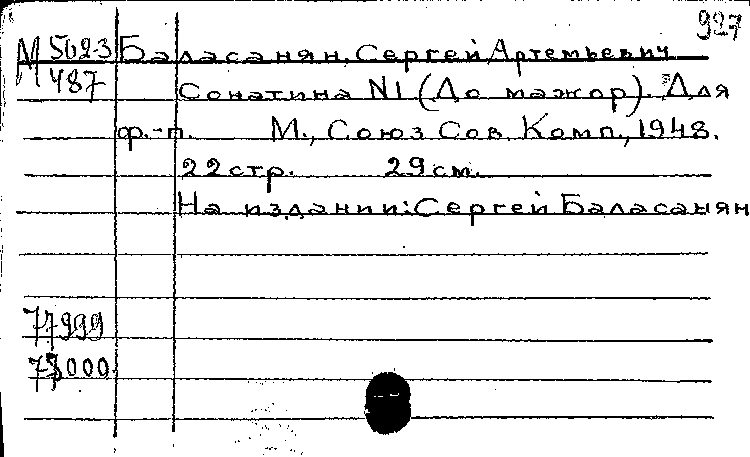 927
М 5623 Баласанян, Сергей Артемьевич
М 487
Сонатина N1 (До мажор). Для
ф.-п. М., Союз Сов. Комп., 1948.
22 стр. 29 см.
На издании: Сергей Баласанян
77999
78000